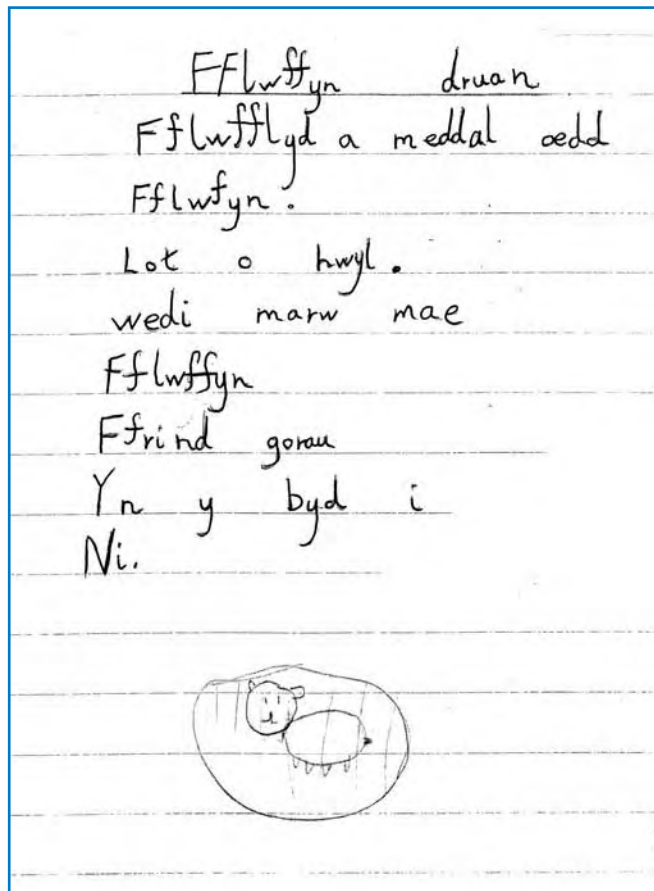 FFlwffyn druan
Fflwfflyd a meddal oedd
Fflwfyn.
Lot o hwyl.
wedi marw mae
Fflwffyn
Ffrind gorau
Yn y byd i
Ni.